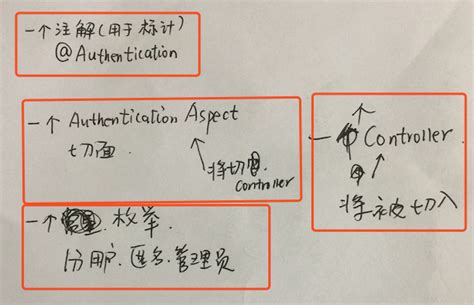 一个注解(用于标计)
@Authentication
一个 Authentication Aspect
切面
将切
Controller
一个 Controller
将被切入
一个 枚举.
分用户.匿名.管理员